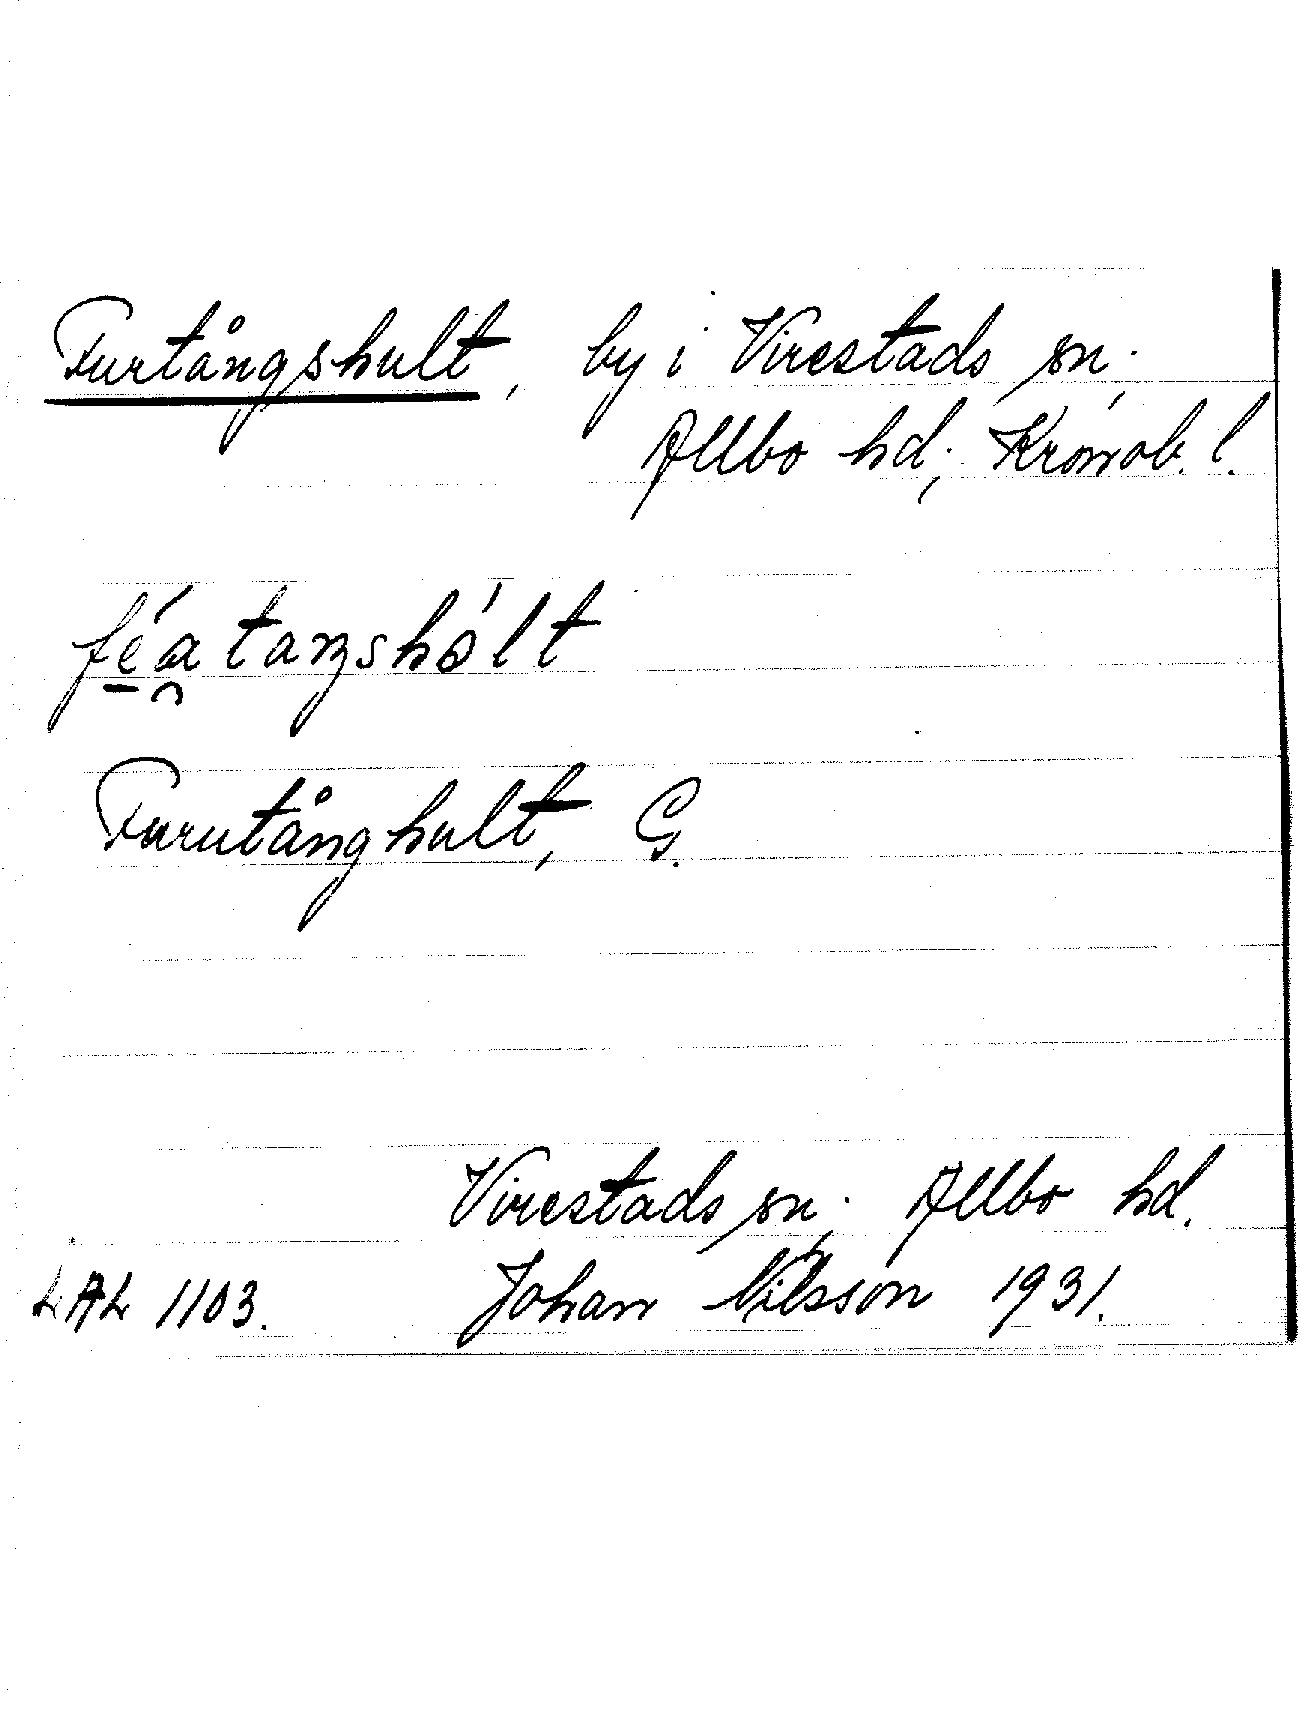 Furtångshult, by i Virestads sn,
Allbo hd; Kronob. l.
Furutånghult, G.
Virestads sn, Allbo hd.
LAL 1103. Johan Nilsson 1931.